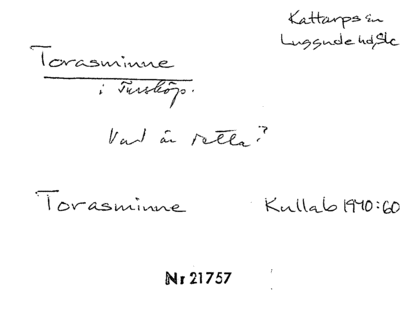 Kattarps sn
Luggude hd, Sk
Torasminne
i Tursköp.
Vad är detta?
Torasminne Kullab 1940:60
Nr 21757